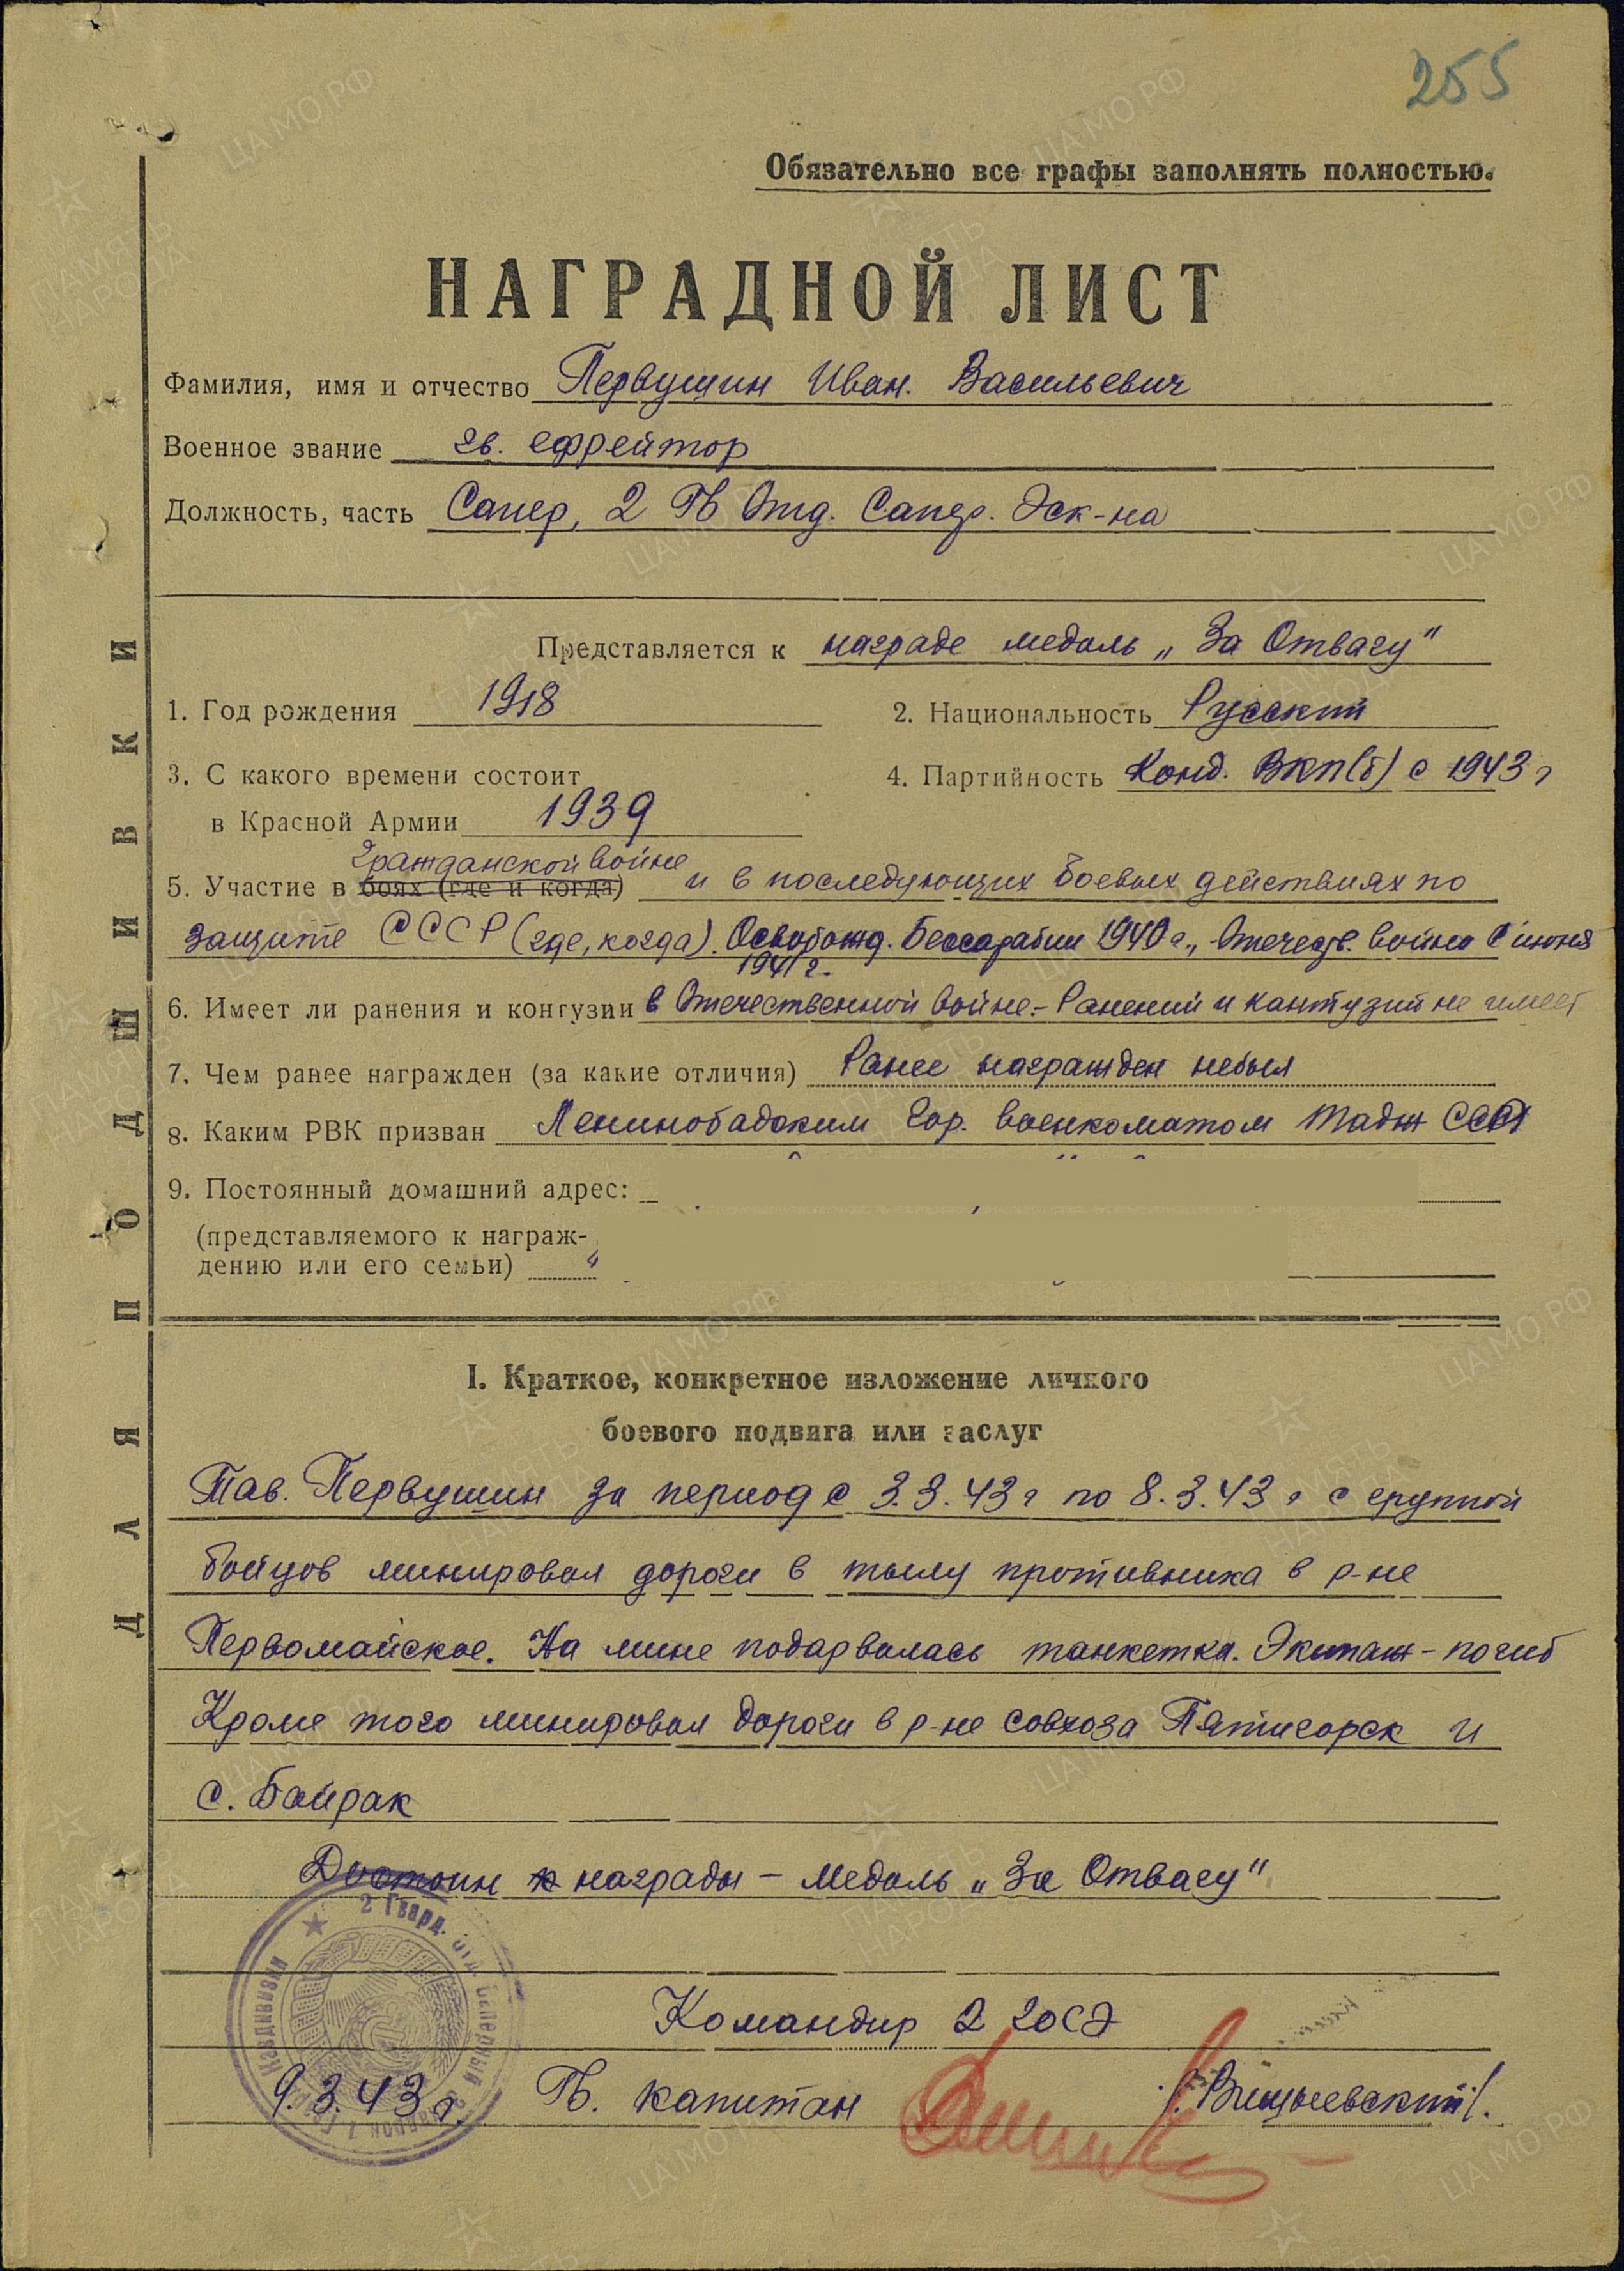 255
Обязательно все графы заполнять полностью.
НАГРАДНОЙ ЛИСТ
Фамилия, имя и отчество Первушин Иван. Васильевич
Военное звание гв. ефрейтор
Должность, часть Сапер, 2 Гв Отд. Сапер. Эск-на
Представляется к награде медаль „За Отвагу"
1. Год рождения 1918 2. Национальность Русский
3. С какого времени состоит 4. Партийность Канд. ВКП(б) с 1943 г
в Красной Армии 1939
гражданской войне
5. Участие в боях (где и когда) и в последующих боевых действиях по
защите СССР (где, когда). Освобожд. Бессарабии 1940 г., Отечеств. война с июня
1941 г.
6. Имеет ли ранения и контузии в Отечественной войне.- Ранений и кантузий не имеет
7. Чем ранее награжден (за какие отличия) Ранее награжден небыл
8. Каким РВК призван Ленинобадским Гор. военкоматом Тадж ССР
9. Постоянный домашний адрес:
(представляемого к награж-
дению или его семьи)
I. Краткое, конкретное изложение личного
боевого подвига или заслуг
Тов. Первушин за период с 3.3.43 г по 8.3.43 г с группой
бойцов минировал дороги в тылу противника в р-не
Первомайское. На мине подарвалась танкетка. Экипаж - погиб
Кроме того минировал дороги в р-не совхоза Пятигорск и
с. Байрак
Достоин награды - медаль „За Отвагу"
Командир 2 гОСЭ
9.3.43 г. Гв. капитан /. Вишневский /.
2 Гвард. отд. Саперный
Кавдивизии
ДЛЯ ПОДШИВКИ
ЦА МО РФ
ПАМЯТЬ НАРОДА